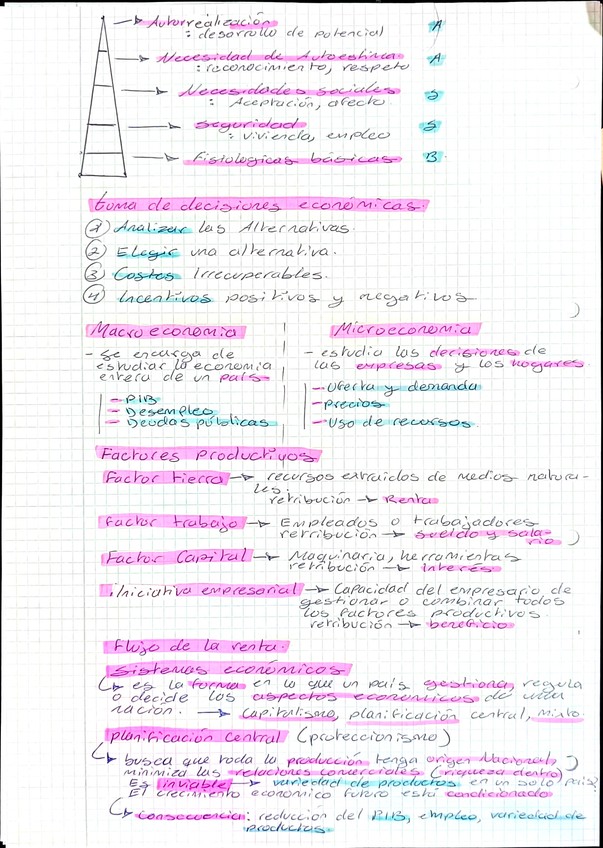 Autorrealización A
: desarrollo de potencial
Necesidad de Autoestima A
: reconocimiento, respeto
Necesidades sociales S
: Aceptación, afecto
seguridad S
: vivienda, empleo
Fisiologicas básicas B
toma de decisiones económicas.
1 Analizar las Alternativas.
2 Elegir una alternativa.
3 Costes Irrecuperables.
4 Incentivos positivos y negativos
Macroeconomia
- se encarga de
estudiar la economia
entera de un país
- PIB
- Desempleo
- Deudas públicas
Microeconomia
- estudia las decisiones de
las empresas y los hogares.
- Oferta y demanda
- precios
- Uso de recursos.
Factores productivos
Factor tierra → recursos extraidos de medios natura-
les.
retribución → Renta
Factor trabajo → Empleados o trabajadores
retribución → sueldo y sala-
rio
Factor Capital → Maquinaria, herramientas
retribución → interés
iniciativa empresarial → Capacidad del empresario de
gestionar o combinar todos
los factores productivos.
retribución → beneficio
Flujo de la renta.
sistemas económicos
↳ es la forma en lo que un país gestiona, regula
o decide los aspectos económicos de una
nación. → Capitalismo, planificación central, mixto.
planificación Central (proteccionismo)
↳ busca que toda la producción tenga origen Nacional,
minimiza las relaciones comerciales (riqueza dentro)
Es inviable → variedad de productos en un solo país?
El crecimiento económico futuro está condicionado
↳ consecuencia: reducción del PIB, empleo, variedad de
productos.